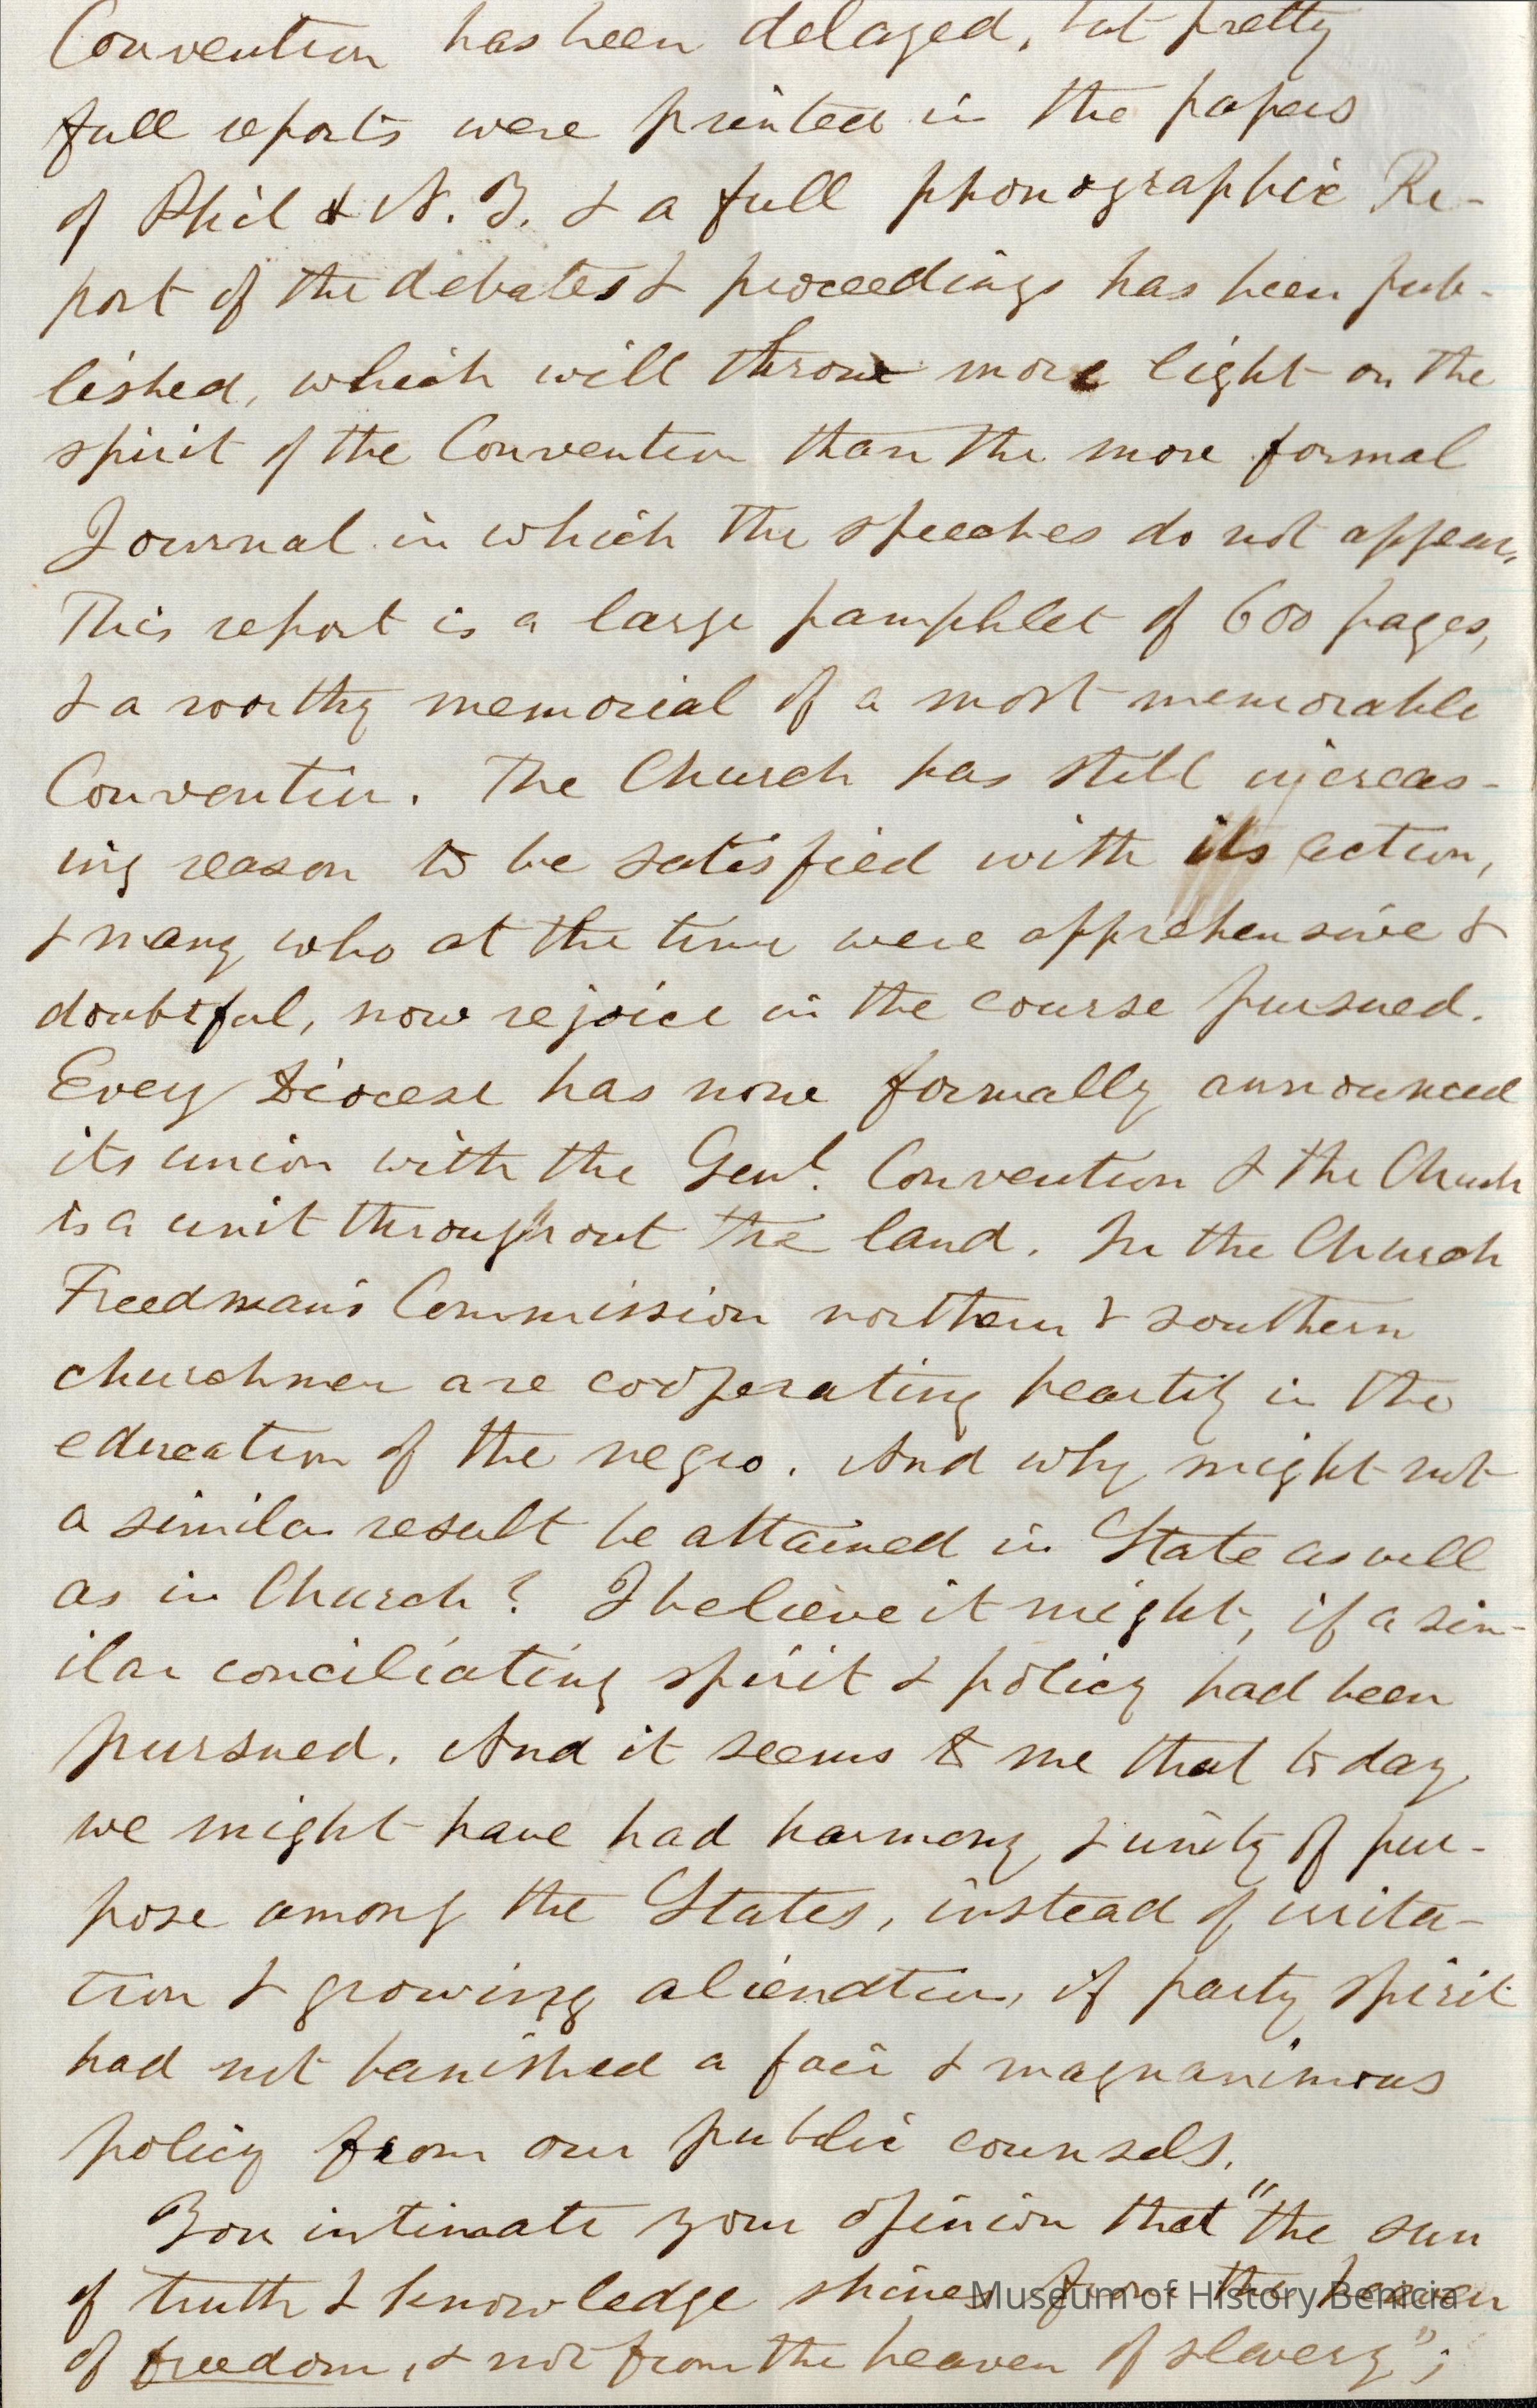 Convention has been delayed, but pretty
full reports were printed in the papers
of Phil & N. Y. & a full phonographic Re-
port of the debates & proceedings has been pub-
lished, which will throw more light on the
spirit of the Convention than the more formal
Journal in which the speeches do not appear.
This report is a large pamphlet of 600 pages,
& a worthy memorial of a most memorable
Convention. The Church has still increas-
ing reason to be satisfied with its action,
& many who at the time were apprehensive &
doubtful, now rejoice in the course pursued.
Every Diocese has now formally announced
its union with the Genl. Convention & the Church
is a unit throughout the land. In the Church
Freedman's Commission northern & southern
churchmen are coöperating heartily in the
education of the negro. And why might not
a similar result be attained in State as well
as in Church? I believe it might, if a sim-
ilar conciliating spirit & policy had been
pursued. And it seems to me that to day
we might have had harmony & unity of pur-
pose among the States, instead of irrita-
tion & growing alienation, if party spirit
had not banished a fair & magnanimous
policy from our public counsels.
You intimate your opinion that "the sun
of truth & knowledge shines from the heaven
of freedom, & not from the heaven of slavery";
Museum of History Benicia